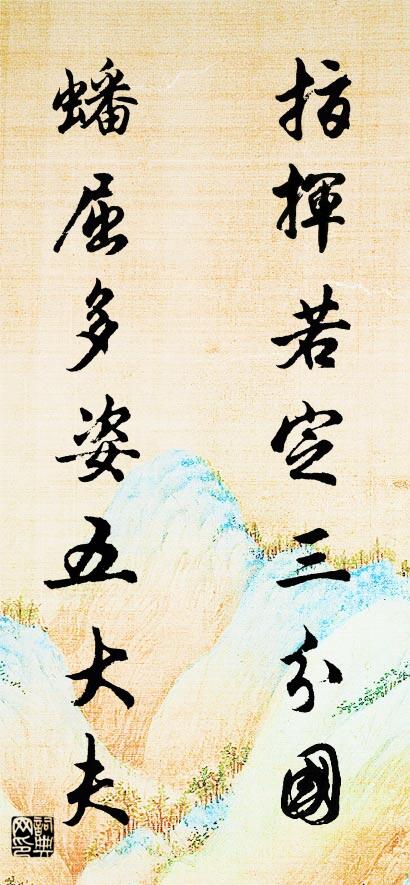 指揮若定三分國
蟠屈多姿五大夫
詞典
网印